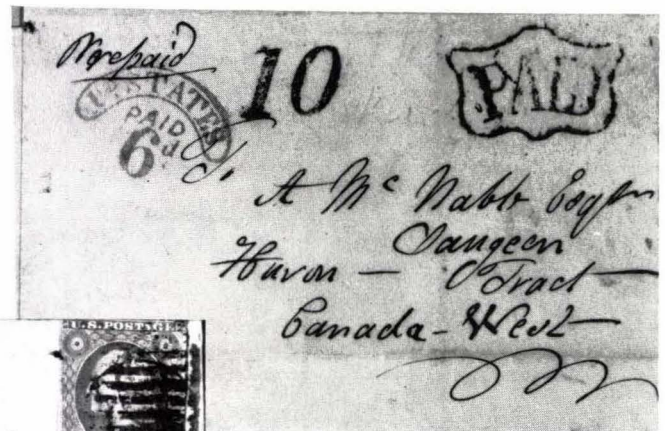 Prepaid
10
PAID
U. STATES
PAID
6d
To
A Mc Nabb Esqr
Saugeen
Huron — Tract —
Canada - West —
U.S. POSTAGE